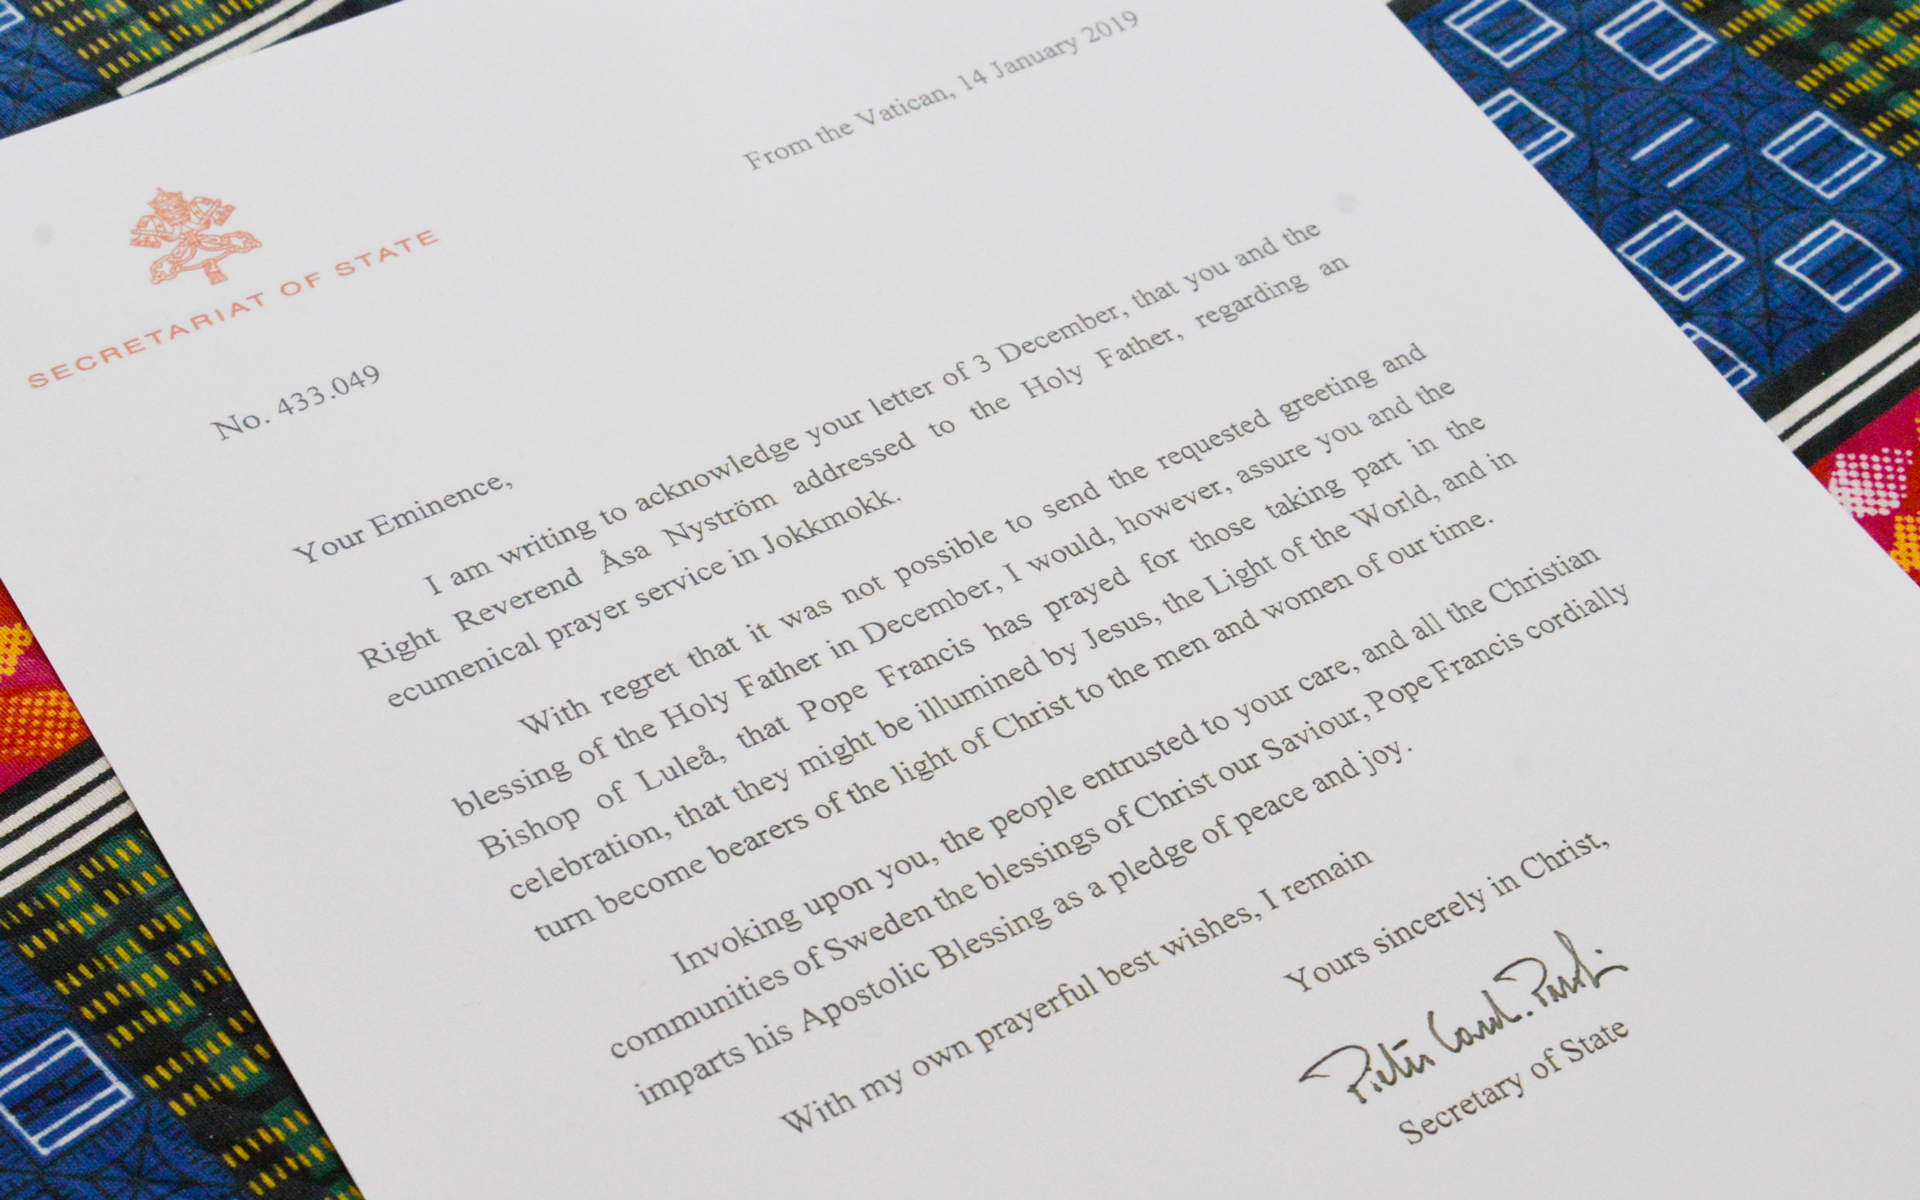 From the Vatican, 14 January 2019
SECRETARIAT OF STATE
No. 433.049
Your Eminence,
I am writing to acknowledge your letter of 3 December, that you and the
Right Reverend Åsa Nyström addressed to the Holy Father, regarding an
ecumenical prayer service in Jokkmokk.
With regret that it was not possible to send the requested greeting and
blessing of the Holy Father in December, I would, however, assure you and the
Bishop of Luleå, that Pope Francis has prayed for those taking part in the
celebration, that they might be illumined by Jesus, the Light of the World, and in
turn become bearers of the light of Christ to the men and women of our time.
Invoking upon you, the people entrusted to your care, and all the Christian
communities of Sweden the blessings of Christ our Saviour, Pope Francis cordially
imparts his Apostolic Blessing as a pledge of peace and joy.
With my own prayerful best wishes, I remain
Yours sincerely in Christ,
Pietro Card. Parolin
Secretary of State